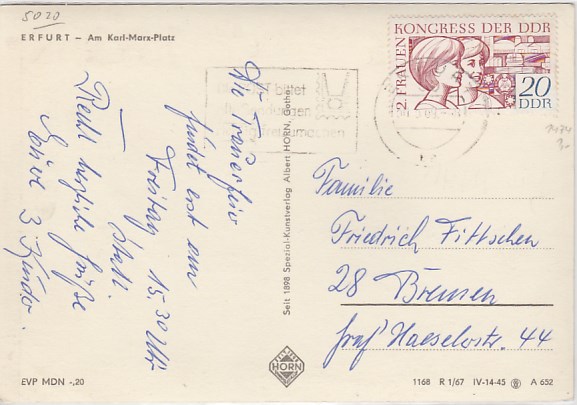 5020
ERFURT – Am Karl-Marx-Platz
Die Trauerfeier
findet erst am
Freitag, 15.30 Uhr
statt.
—
Recht herzliche Grüße
Eure 3 Kinder.
2. FRAUEN KONGRESS DER DDR
20
DDR
bittet
Seit 1898 Spezial-Kunstverlag Albert HORN, Gotha
Familie
Friedrich Fittschen
28 Bremen
Graf Haeselerstr. 44
HORN
EVP MDN -,20
1168 R 1/67 IV-14-45 A 652